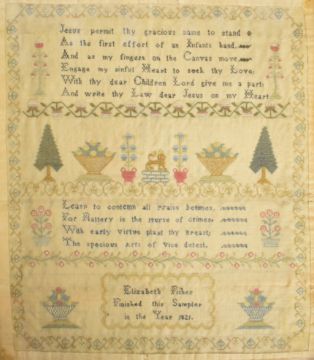 Jesus permit thy gracious name to stand
As the first effort of an Infants hand
And as my fingers on the Canvas move
Engage my sinful Heart to seek thy Love
With thy dear Children Lord give me a part
And write thy Law dear Jesus on my Heart
Learn to contemn all Praise betimes
For Flattery is the nurse of crimes
With early virtue plant thy Breast
The specious Arts of Vice detest
Elizabeth Fisher
Finished this Sampler
in the Year 1821.